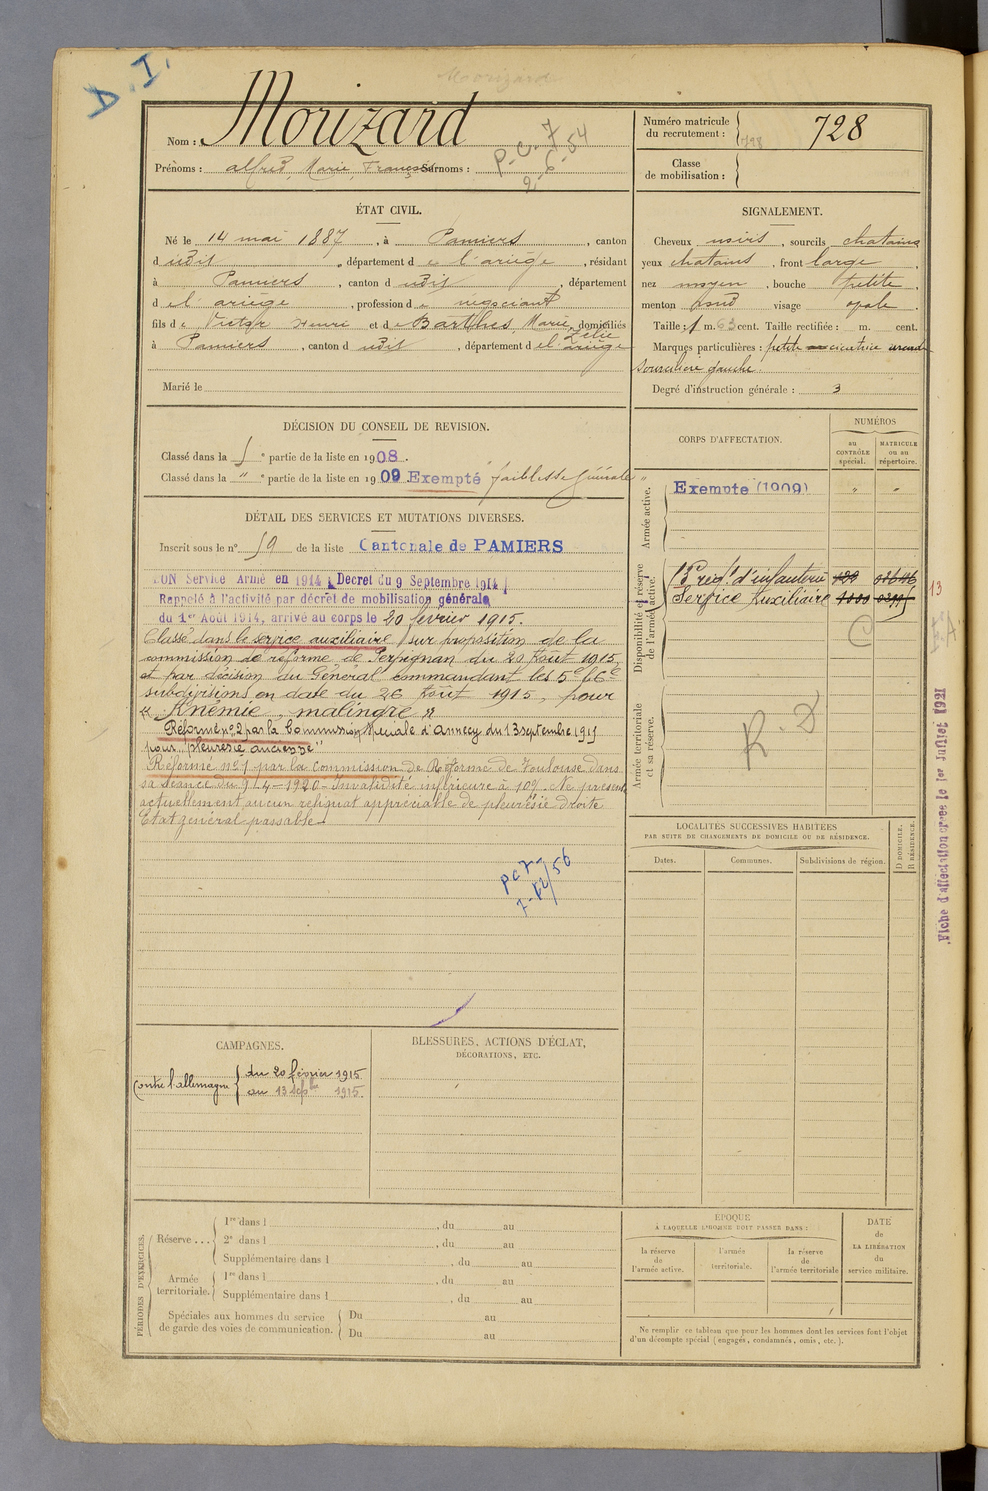 D. I.
Morizard
Nom : Morizard
Prénoms : alfred, Marie, François Surnoms :
P.C. 7
2-6-54
Numéro matricule
du recrutement :
728
728
Classe
de mobilisation :
ÉTAT CIVIL.
Né le 14 mai 1887, à Pamiers, canton
d udit, département de l'ariège, résidant
à Pamiers, canton d udit, département
de l'ariège, profession de négociant
fils de Victor Henri et de Barthes, Marie, Zélie domiciliés
à Pamiers, canton d udit, département de l'ariège
Marié le
SIGNALEMENT.
Cheveux noirs, sourcils chatains
yeux chatains, front large,
nez moyen, bouche petite,
menton rond visage ovale
Taille : 1 m. 63 cent. Taille rectifiée : m. cent.
Marques particulières : petite cicatrice
sourcilière gauche.
Degré d'instruction générale : 3
DÉCISION DU CONSEIL DE REVISION.
Classé dans la 5 e partie de la liste en 1908.
Classé dans la " e partie de la liste en 1909 Exempté faiblesse générale
DÉTAIL DES SERVICES ET MUTATIONS DIVERSES.
Inscrit sous le n° 59 de la liste Cantonale de PAMIERS
BON Service Armé en 1914 (Decret du 9 Septembre 1914)
Rappelé à l'activité par décret de mobilisation générale
du 1er Août 1914, arrivé au corps le 20 février 1915.
Classé dans le service auxiliaire sur proposition de la
commission de réforme de Perpignan du 20 Août 1915
et par décision du Général commandant les 5e & 6e
subdivisions en date du 26 Août 1915, pour
" Anémie, malingre "
Réformé n° 2 par la Commission Spéciale d'Annecy du 13 septembre 1915
pour "pleurésie ancienne"
Réformé n° 1 par la Commission de Réforme de Toulouse dans
sa séance du 9-4-1920- Invalidité inférieure à 10%. Ne présente
actuellement aucun reliquat appréciable de pleurésie droite
Etat général passable.
P C 7-
7-12/56
CORPS D'AFFECTATION.
NUMÉROS
au
CONTRÔLE
spécial.
MATRICULE
ou au
répertoire.
Armée active.
Exempté (1909) " "
Disponibilité et réserve
de l'armée active.
Service Auxiliaire
13
C
Armée territoriale
et sa réserve.
R. D
Fiche d'affectation créée le 1er Juillet 1921
LOCALITÉS SUCCESSIVES HABITÉES
PAR SUITE DE CHANGEMENTS DE DOMICILE OU DE RÉSIDENCE.
Dates.
Communes.
Subdivisions de région.
D DOMICILE.
R RÉSIDENCE.
CAMPAGNES.
Contre l'allemagne
du 20 février 1915.
au 13 sepbre 1915.
BLESSURES, ACTIONS D'ÉCLAT,
DÉCORATIONS, ETC.
PÉRIODES D'EXERCICES.
Réserve ...
1re dans l , du au
2e dans l , du au
Supplémentaire dans l , du au
Armée
territoriale.
1re dans l , du au
Supplémentaire dans l , du au
Spéciales aux hommes du service
de garde des voies de communication.
Du au
Du au
ÉPOQUE
À LAQUELLE L'HOMME DOIT PASSER DANS :
la réserve
de
l'armée active.
l'armée
territoriale.
la réserve
de
l'armée territoriale
DATE
de
LA LIBÉRATION
du
service militaire.
Ne remplir ce tableau que pour les hommes dont les services font l'objet
d'un décompte spécial (engagés, condamnés, omis, etc.).